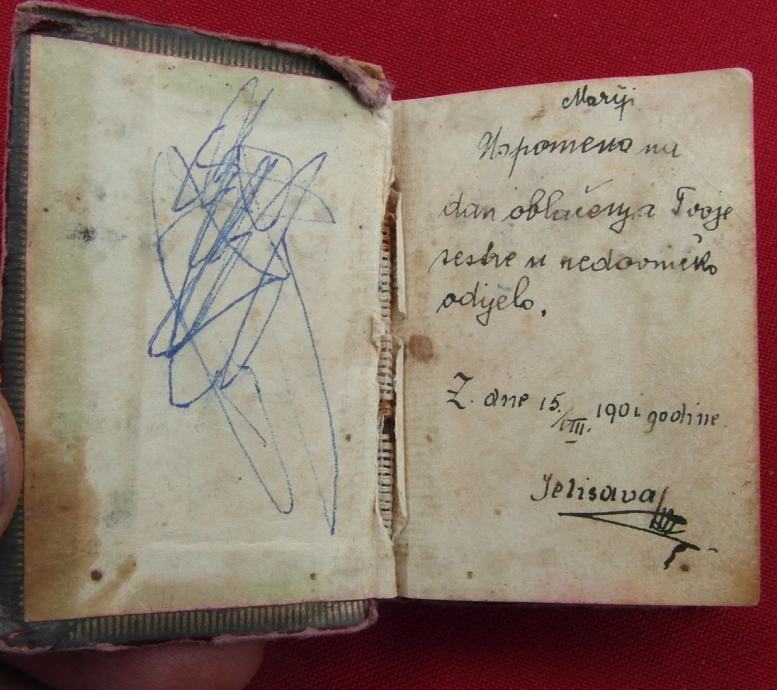 Mariji
Uspomena na
dan oblačenja Tvoje
sestre u redovničko
odijelo.
Z. dne 15/VIII. 1901 godine.
Jelisava